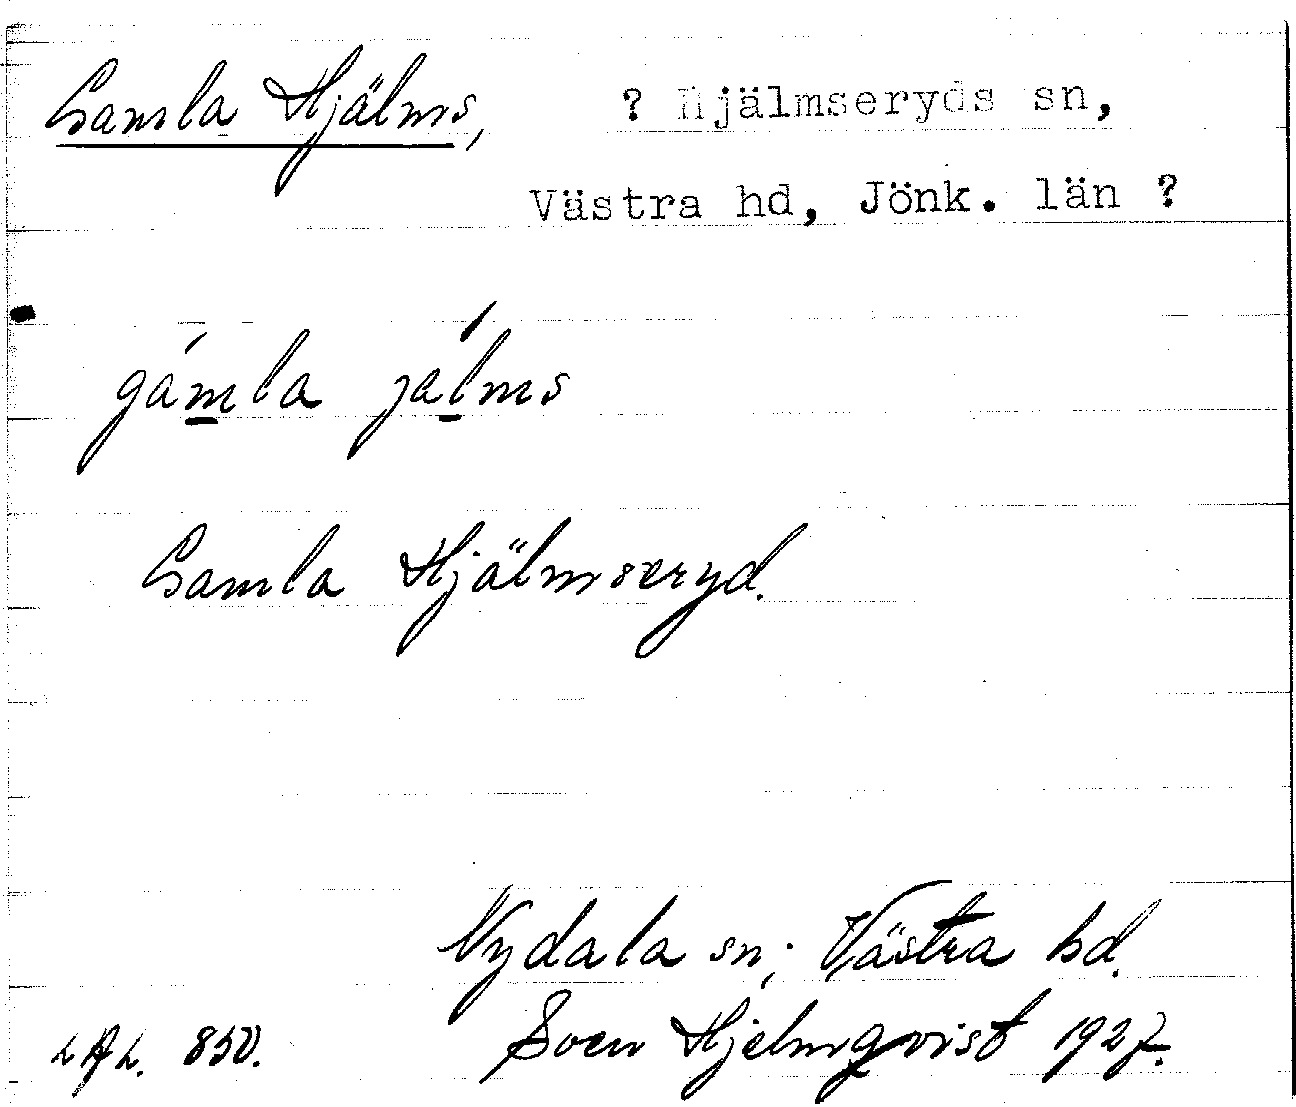 Gamla Hjälms, ? Hjälmseryds sn,
Västra hd, Jönk. län ?
gamla jalms
Gamla Hjälmseryd.
Nydala sn; Västra hd.
LAL. 850. Sven Hjelmqvist 1927.